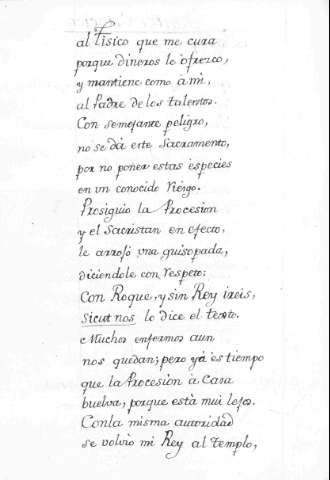 al Fisico que me cura
porque dineros le ofrezco,
y mantiene como à mi,
al Padre de los talentos.
Con semejante peligro,
no se dà este Sacramento,
por no poner estas especies
en un conocido riesgo.
Prosiguio la Procesion
y el Sacristan en efecto,
le arrojó una guisopada,
diciendole con respeto:
Con Roque, y sin Rey ireis,
sicut nos lo dice el texto.
Muchos enfermos aun
nos quedan; pero yá es tiempo
que la Procesion à Casa
buelva, porque està mui lejos.
Conla misma autoridad
se volvio mi Rey al templo,